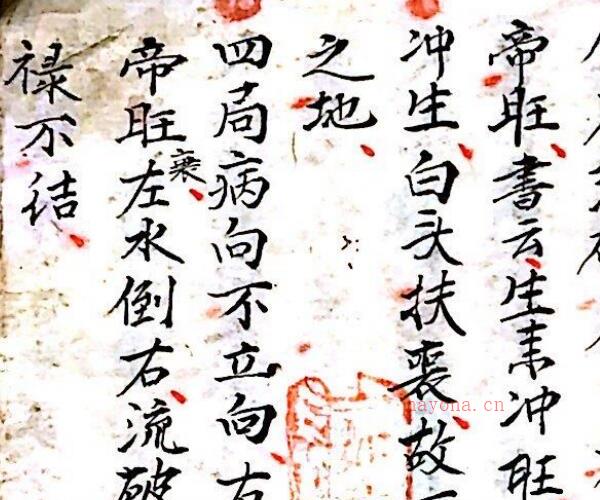 帝旺書云生来冲旺
冲生白头扶丧故
之地
四局病向不立向
帝旺左水倒右流破
衰
禄不结
nayona.cn